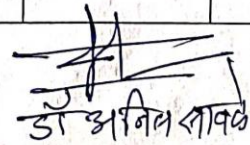 डॉ अनिल साबळे